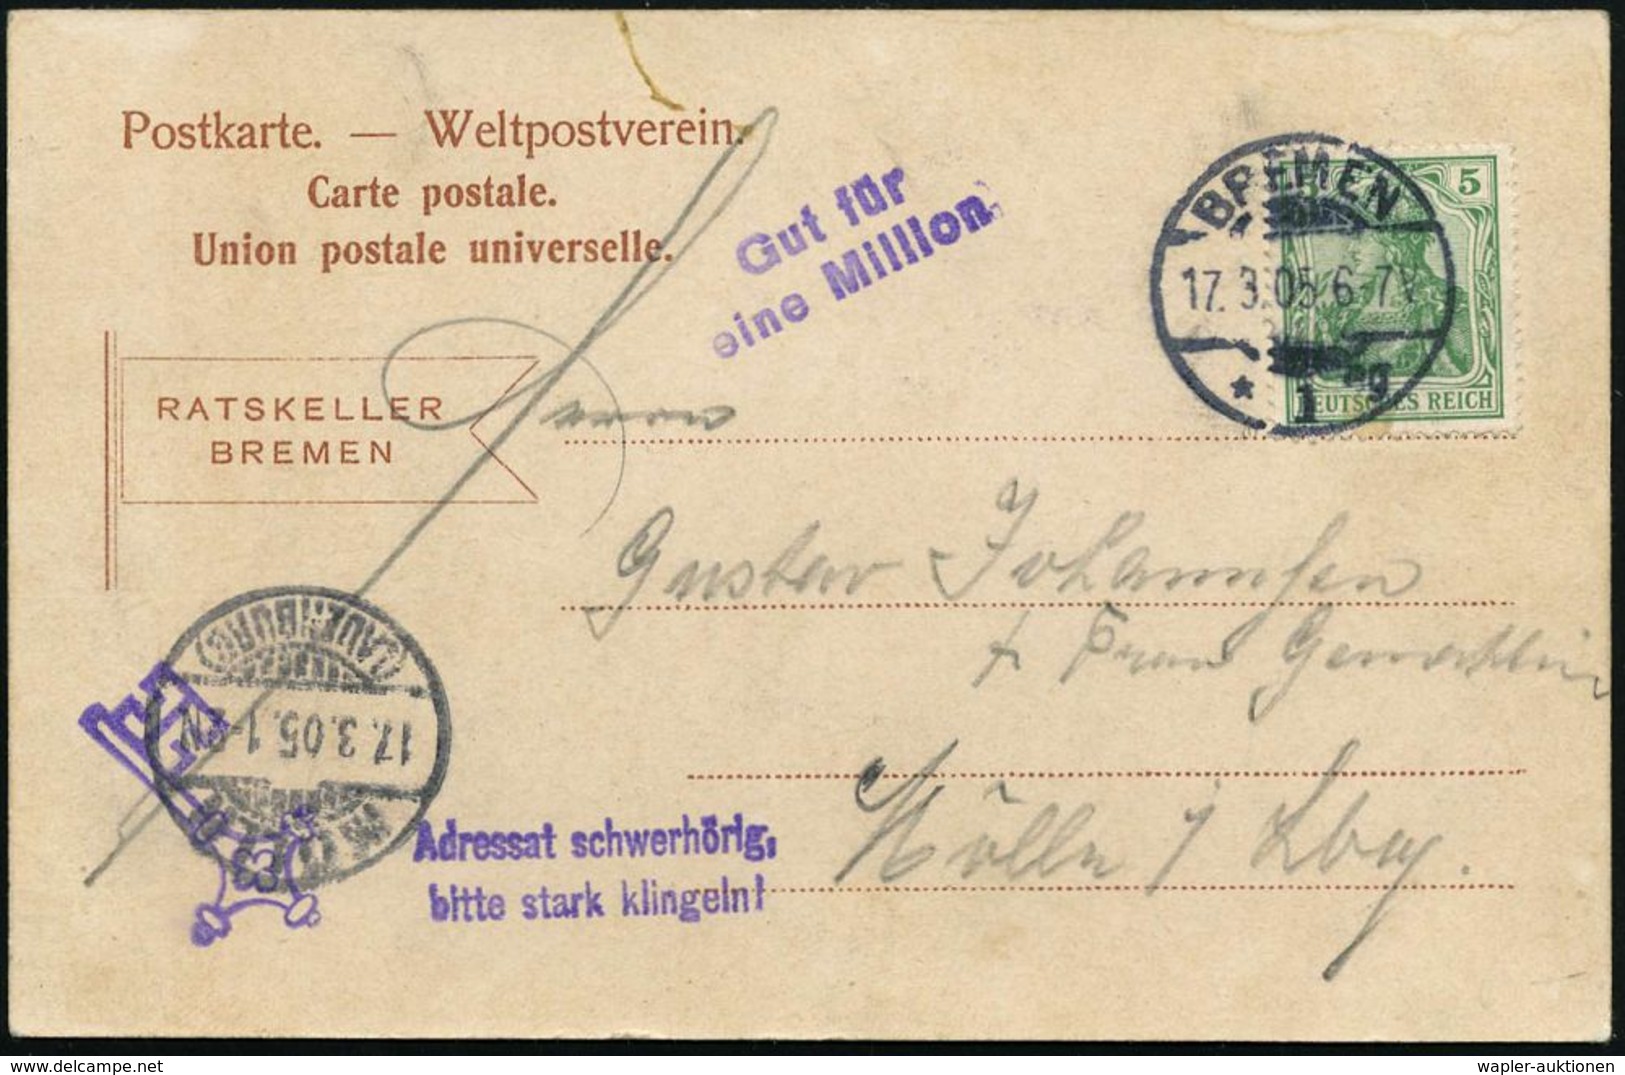 Postkarte. — Weltpostverein.
Carte postale.
Union postale universelle.
Gut für
eine Million.
BREMEN
17. 3. 05. 6-7V
* 1 g
5
DEUTSCHES REICH
RATSKELLER
BREMEN
Herrn
Gustav Johannsen
+ Frau Gemahlin
Mölln i/ Lbg.
(LAUENBURG)
17.3.05.1-2N
MÖLLN
63
Adressat schwerhörig,
bitte stark klingeln!
wapler-auktionen